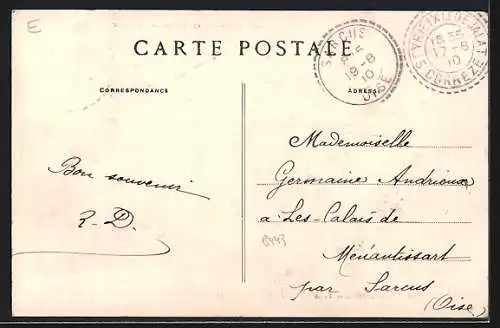 E
CARTE POSTALE
CORRESPONDANCE
ADRESSE
SARCUS
18-8
10
OISE
ST YRIEIX LE DEJALAT
18 35
17-8
10
CORREZE
Mademoiselle
Germaine Andrioux
Bon souvenir
a Les-Calais de
R-D.
8443
Menantissart
par Sarcus
(Oise)